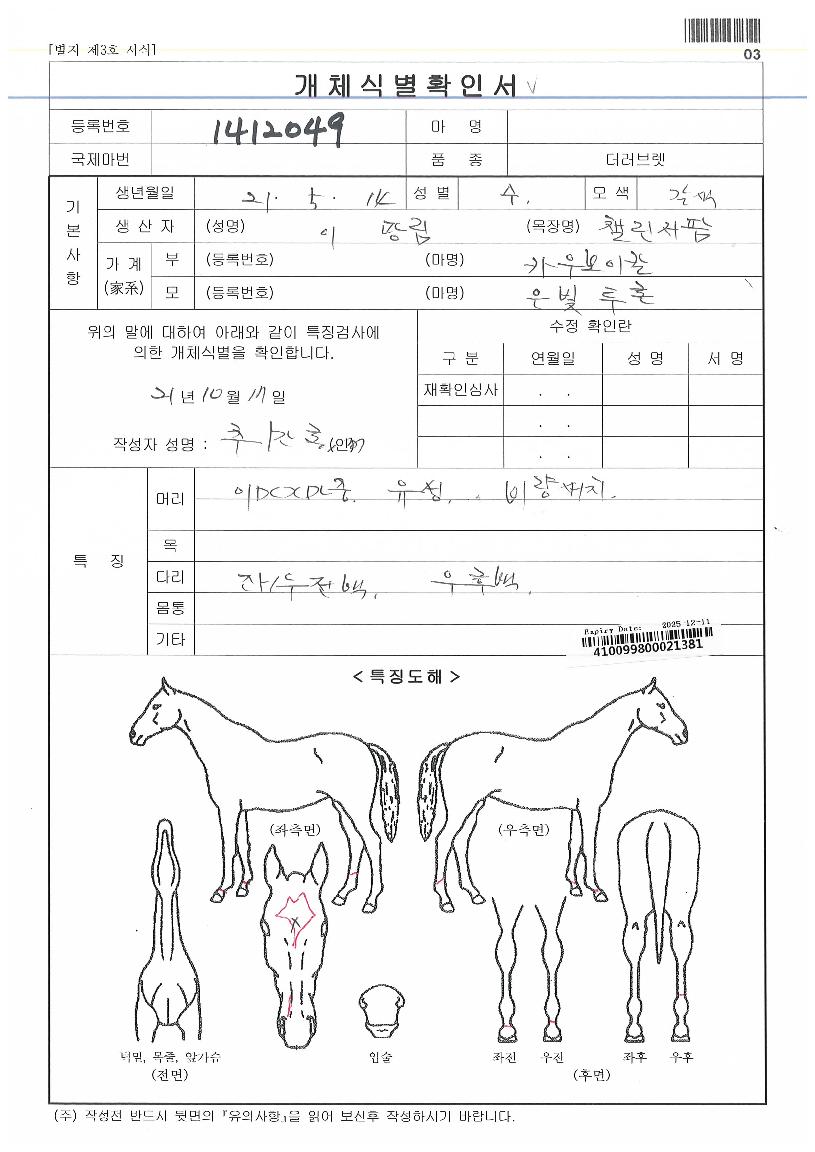 03
[별지 제3호 서식]
개체식별확인서 √
등록번호 1412049 마 명
국제마번 품 종 더러브렛
기본사항 생년월일 21. 5. 14 성별 수. 모색 갈색
생 산 자 (성명) 이 광림 (목장명) 챌린저팜
가 계 (家系) 부 (등록번호) (마명) 카우보이칼
모 (등록번호) (마명) 은빛투혼
위의 말에 대하여 아래와 같이 특징검사에
의한 개체식별을 확인합니다.
21년 10월 17일
작성자 성명 :
수정 확인란
구 분 연월일 성 명 서 명
재확인심사 . .
. .
. .
특 징
머리 유성. 비량
목
다리 좌/우전백, 우후백.
몸통
기타
Expiry Date: 2025-12-11
410099800021381
< 특징도해 >
(좌측면) (우측면)
턱밑, 목줄, 앞가슴 입술 좌전 우전 좌후 우후
(전면) (후면)
(주) 작성전 반드시 뒷면의 『유의사항』을 읽어 보신후 작성하시기 바랍니다.